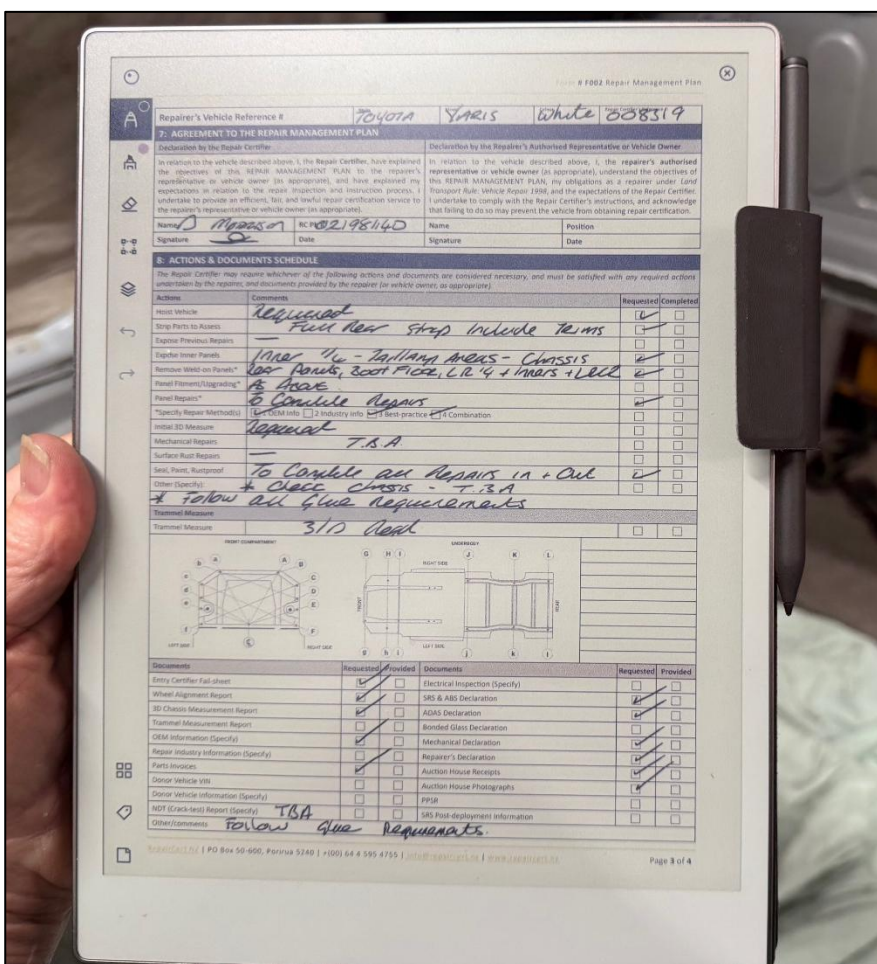 # F002 Repair Management Plan
Repairer's Vehicle Reference # TOYOTA YARIS White 008519
7: AGREEMENT TO THE REPAIR MANAGEMENT PLAN
Declaration by the Repair Certifier
In relation to the vehicle described above, I, the Repair Certifier, have explained
the objectives of this REPAIR MANAGEMENT PLAN to the repairer's
representative or vehicle owner (as appropriate), and have explained my
expectations in relation to the repair inspection and instruction process. I
undertake to provide an efficient, fair, and lawful repair certification service to
the repairer's representative or vehicle owner (as appropriate).
Declaration by the Repairer's Authorised Representative or Vehicle Owner
In relation to the vehicle described above, I, the repairer's authorised
representative or vehicle owner (as appropriate), understand the objectives of
this REPAIR MANAGEMENT PLAN, my obligations as a repairer under Land
Transport Rule: Vehicle Repair 1998, and the expectations of the Repair Certifier.
I undertake to comply with the Repair Certifier's instructions, and acknowledge
that failing to do so may prevent the vehicle from obtaining repair certification.
Name RC Name Position
Signature Date Signature Date
8: ACTIONS & DOCUMENTS SCHEDULE
The Repair Certifier may require whichever of the following actions and documents are considered necessary, and must be satisfied with any required actions
undertaken by the repairer, and documents provided by the repairer (or vehicle owner, as appropriate).
Actions Comments Requested Completed
Hoist Vehicle Required
Strip Parts to Assess Full Rear Strip Include Trims
Expose Previous Repairs —
Expose Inner Panels Inner 1/4 - Taillamp Areas - Chassis
Remove Weld-on Panels* Rear Panels, Boot Floor, LR 1/4 + Inners +
Panel Fitment/Upgrading* As Above
Panel Repairs* To Complete Repairs
*Specify Repair Method(s) 1 OEM Info 2 Industry Info 3 Best-practice 4 Combination
Initial 3D Measure Required
Mechanical Repairs T.B.A
Surface Rust Repairs —
Seal, Paint, Rustproof To Complete all Repairs in + Out
Other (Specify): * Check Chassis - T.B.A
* Follow all Glue Requirements
Trammel Measure
Trammel Measure 3/D
FRONT COMPARTMENT
UNDERBODY
RIGHT SIDE
FRONT
LEFT SIDE
LEFT SIDE
RIGHT SIDE
Documents Requested Provided
Entry Certifier Fail-sheet
Wheel Alignment Report
3D Chassis Measurement Report
Trammel Measurement Report
OEM Information (Specify)
Repair Industry Information (Specify)
Parts Invoices
Donor Vehicle VIN
Donor Vehicle Information (Specify)
NDT (Crack-test) Report (Specify) TBA
Other/comments Follow Glue Requirements.
Documents Requested Provided
Electrical Inspection (Specify)
SRS & ABS Declaration
ADAS Declaration
Bonded Glass Declaration
Mechanical Declaration
Repairer's Declaration
Auction House Receipts
Auction House Photographs
PPSR
SRS Post-deployment Information
| PO Box 50-600, Porirua 5240 | +(00) 64 4 595 4755 |
Page 3 of 4